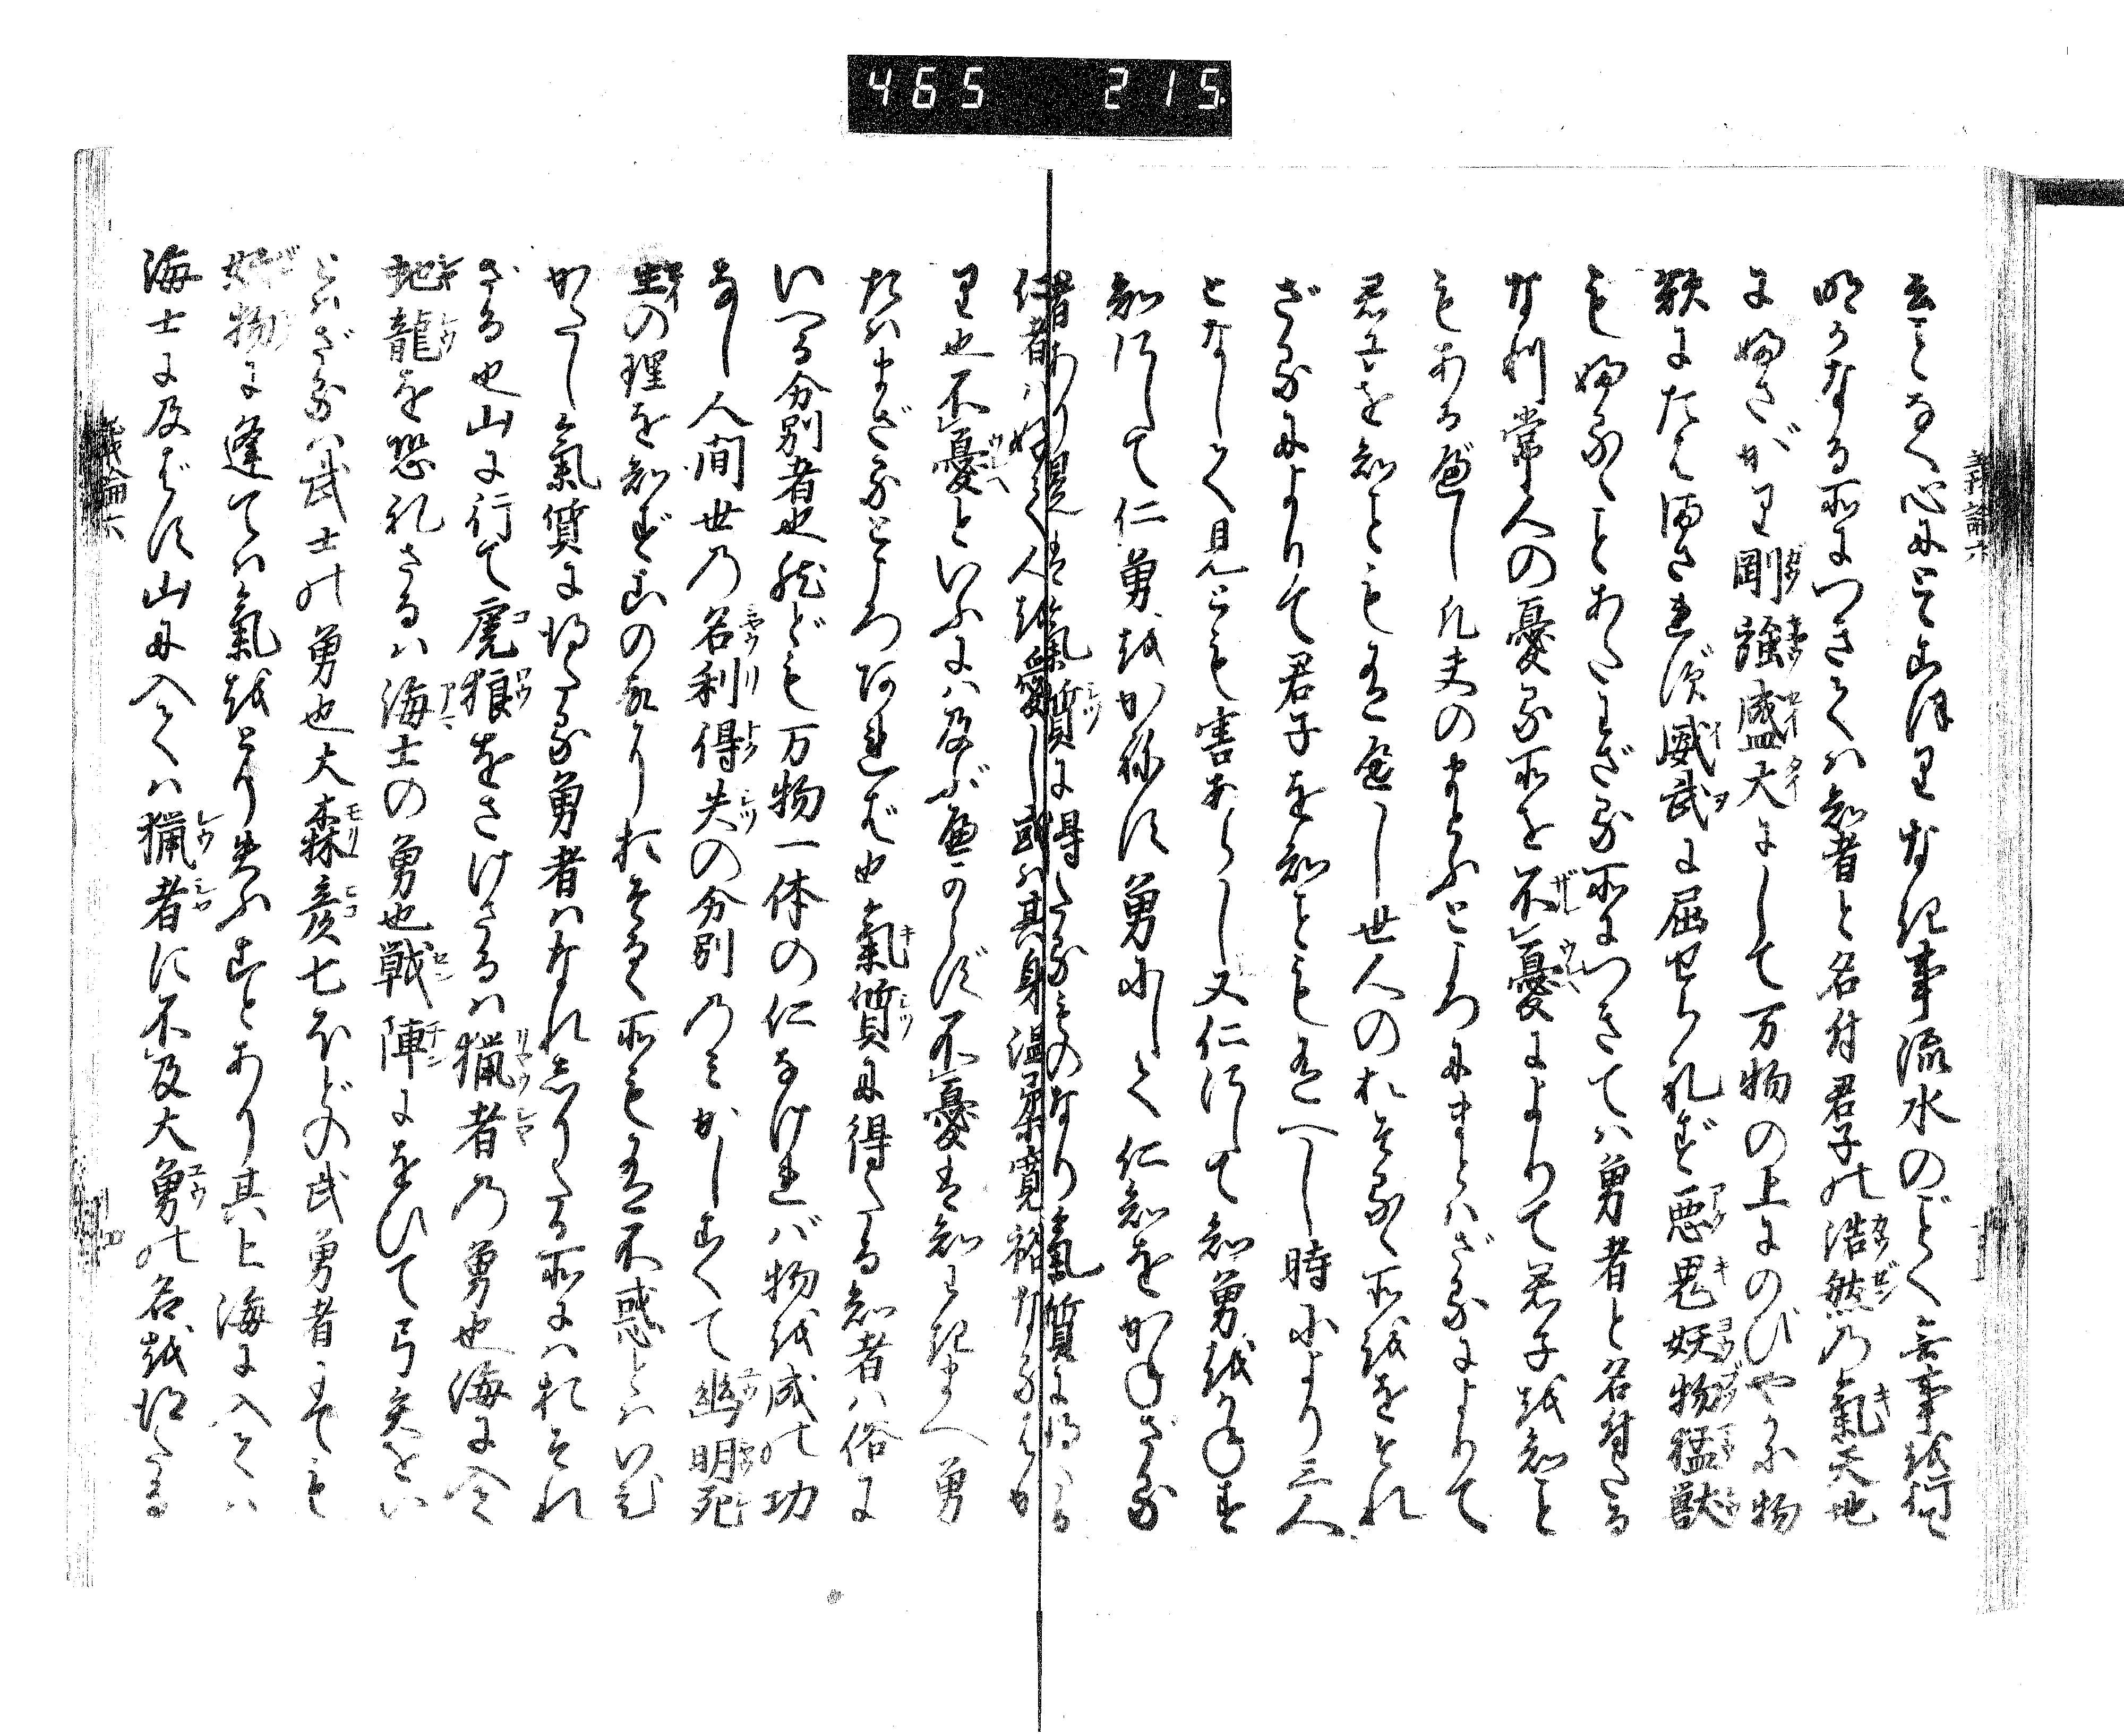 465 215
云ことなく心にとゞこほりなき事流水のごとく無事を行て
明らかなる所につきては知者と名付君子の浩然の氣天地
にふさがり剛強盛大にして万物の上にのびやかに物
欲にたをされず威武に屈せられず悪鬼妖物猛獣
もふるゝことあたはざる所につきては勇者と名付たる
なり常人の憂る所を不憂によりて君子を知こと
もあるべし凡夫のまどふところにまどはざるによりて
君子を知こともあるべし世人のおそるゝ所をおそれ
ざるによりて君子を知こともあるべし時により三人
となして見とも害あらじ又仁にして知勇をかねず
知にして仁勇をかねず勇にして仁知をかねざる
者あり是は氣質に得たるものなり氣質に得たる
仁者はよく人を愛し或は其身温柔寛裕なるばか
り也不憂といふには及ぶべからず不憂は知りきはめ勇
たはまざるところあれば也氣質に得たる知者は俗に
いへる分別者也然ども万物一体の仁なければ物を成の功
なし人間世の名利得失の分別のみかしこくて幽明死
生の理を知ずこのゆへにおそるゝ所も有不惑とはいひ
がたし氣質に得たる勇者はなれしりたる所にはおそれ
ざる也山に行て虎狼をさけざるは猟者の勇也海に入て
蛇龍を恐れざるは海士の勇也戦陣にをひて弓矢をい
とはざるは武士の勇也大森彦七ほどの武勇者にても
妖物に逢ては氣をとり失ふことあり其上海に入ては
海士に及ばず山に入ては猟者に不及大勇の名を得たる